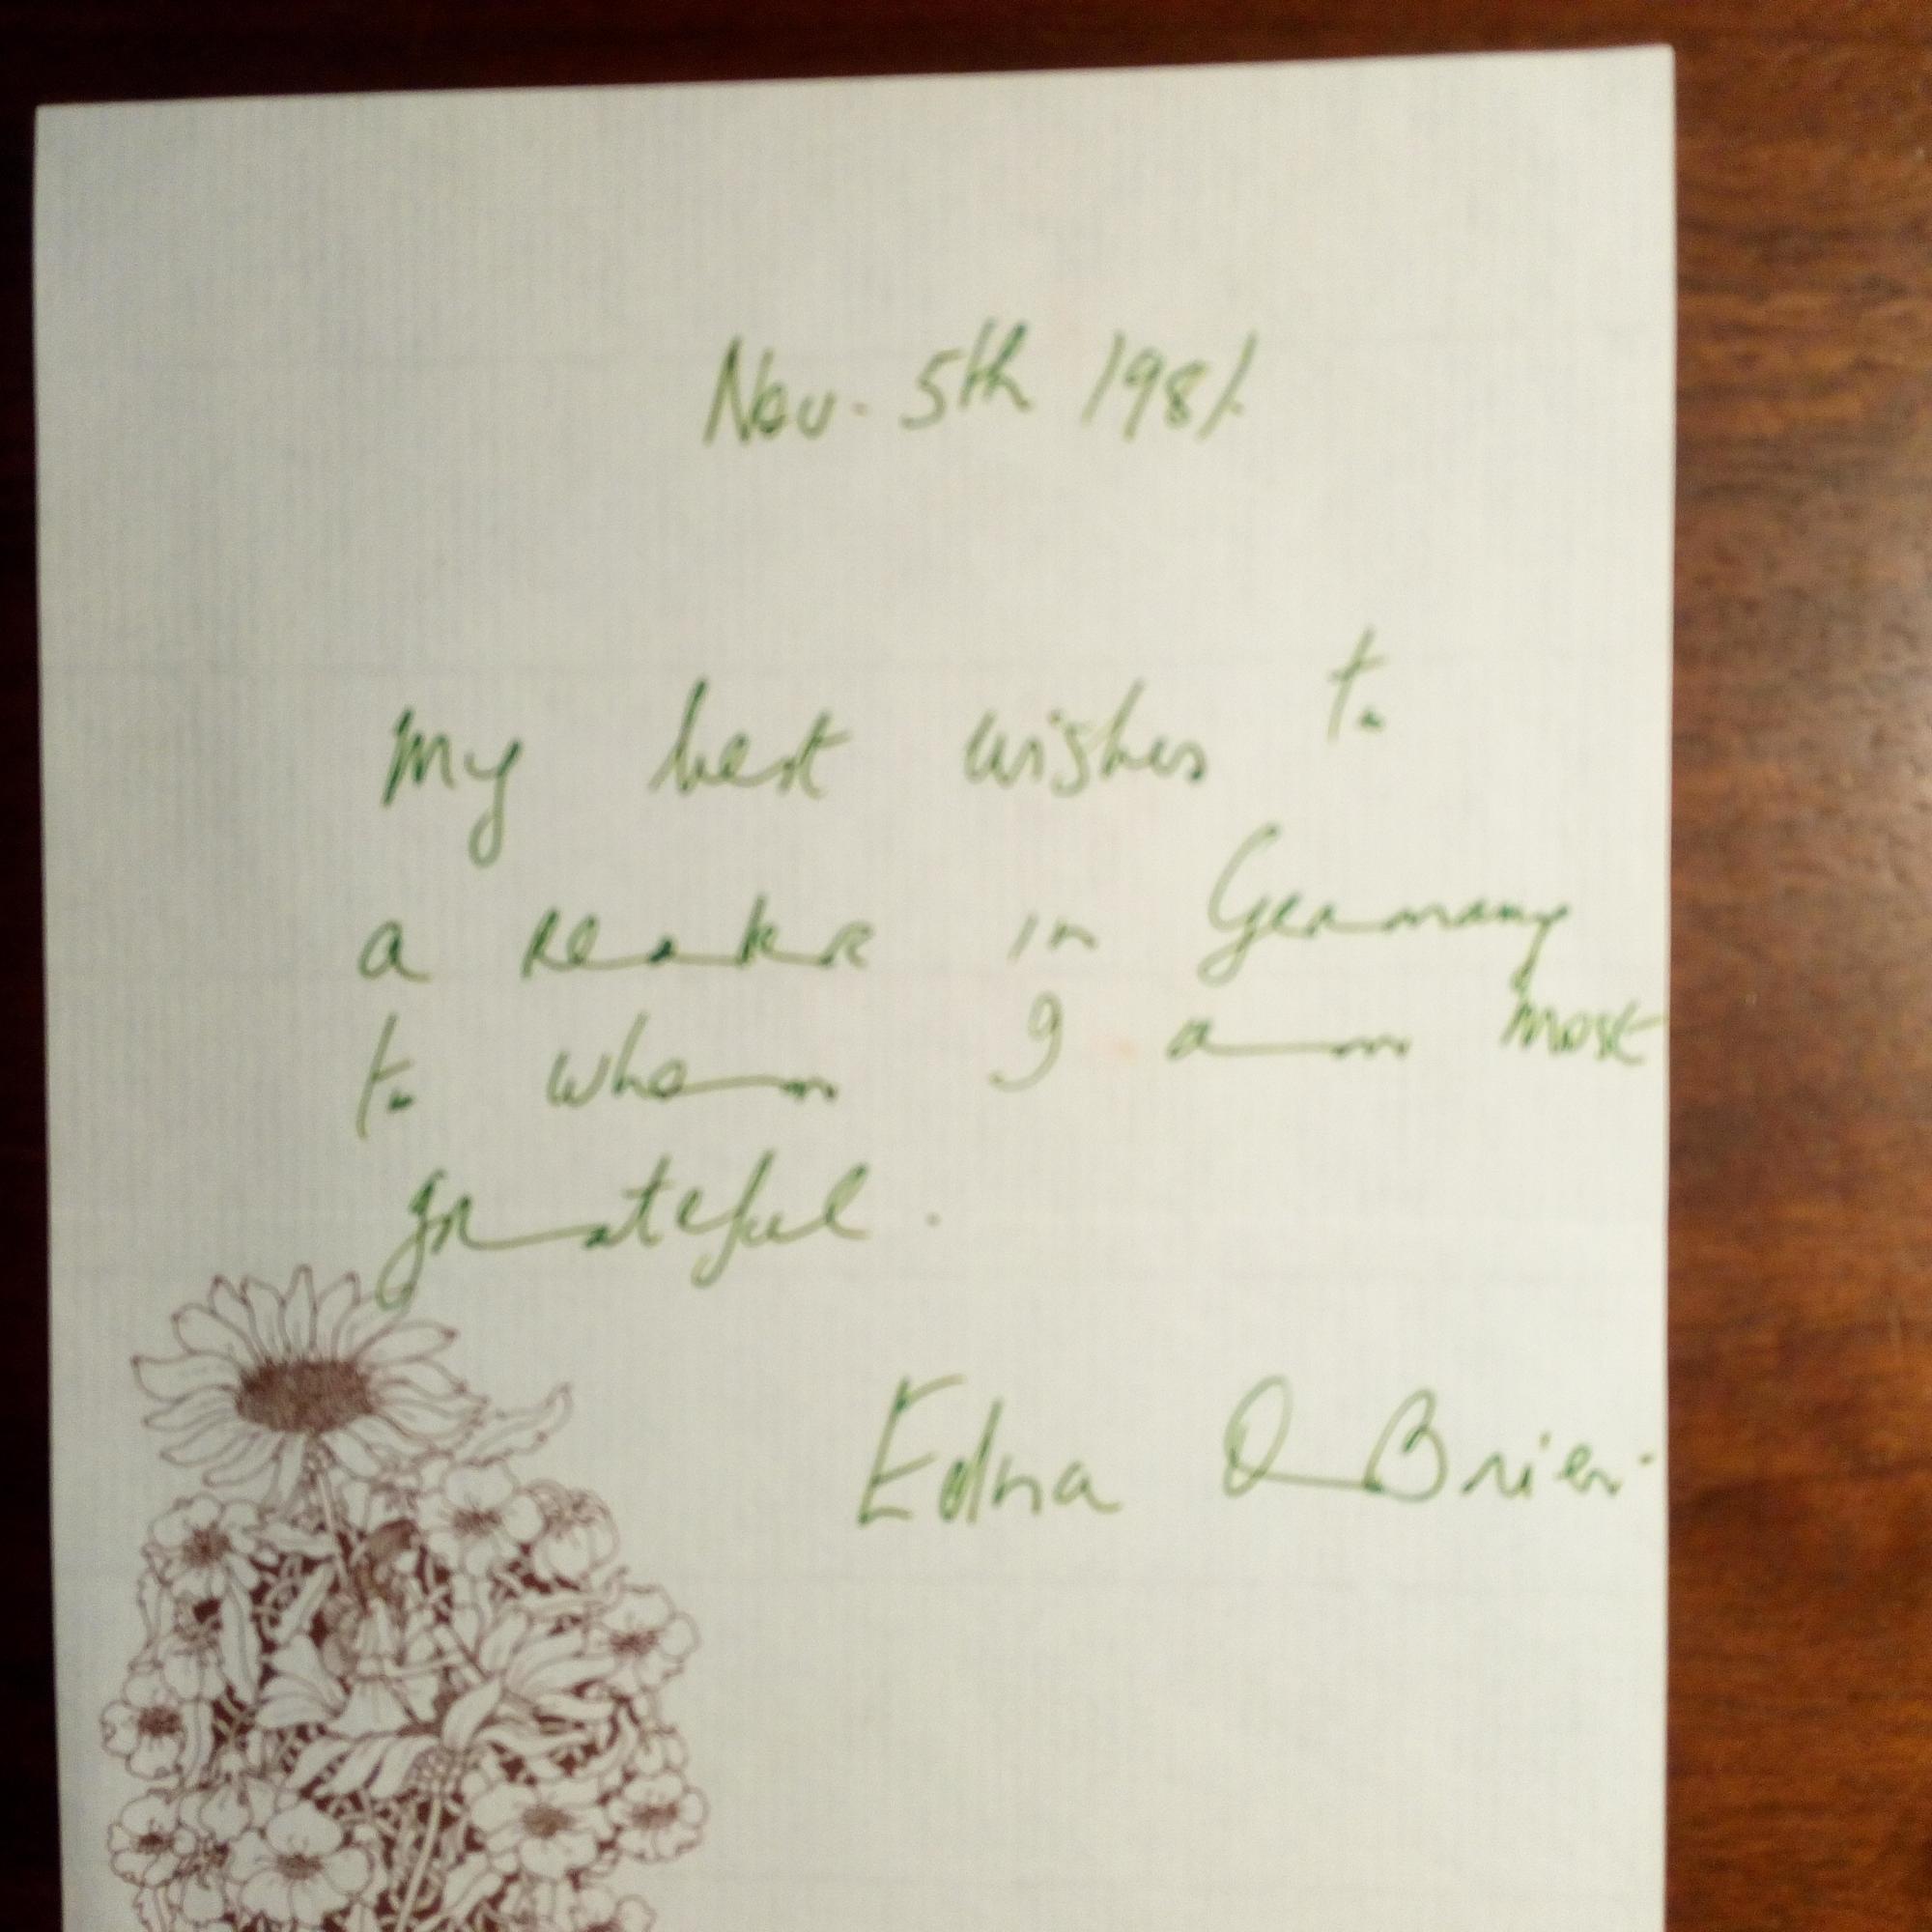 Nov. 5th 1981.
My best wishes to
a reader in Germany
to whom I am most
grateful.
Edna O Brien.